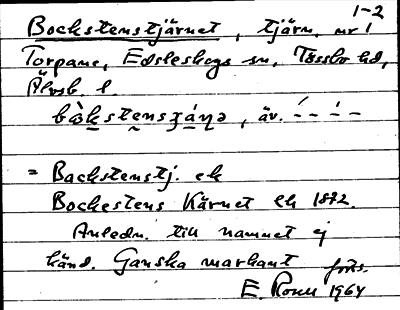 1-2
Bockstenstjärnet, tjärn, nr 1
Torpane, Edsleskogs sn, Tössbo hd,
Älvsb. l.
bòkstensʒánə, äv. ´– – ` –
= Backstenstj. ek
Bockestens Kärnet lk 1892.
Anledn. till namnet ej
känd. Ganska markant forts.
E. 1964